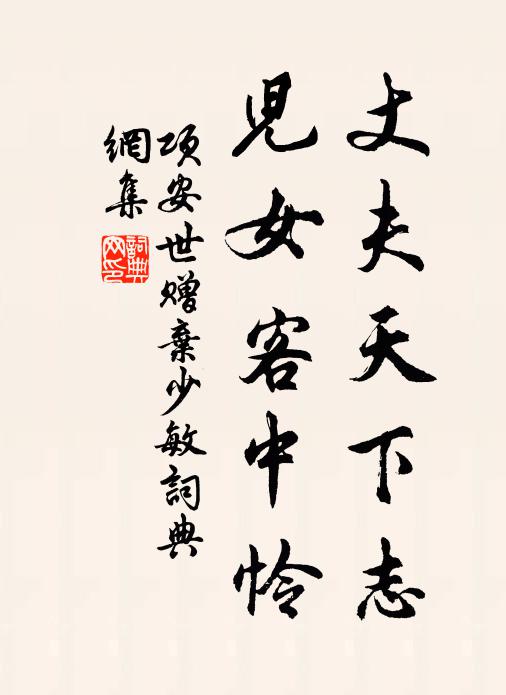 丈夫天下志
兒女客中怜
項安世贈棄少敏詞典
網集
詞典
网印